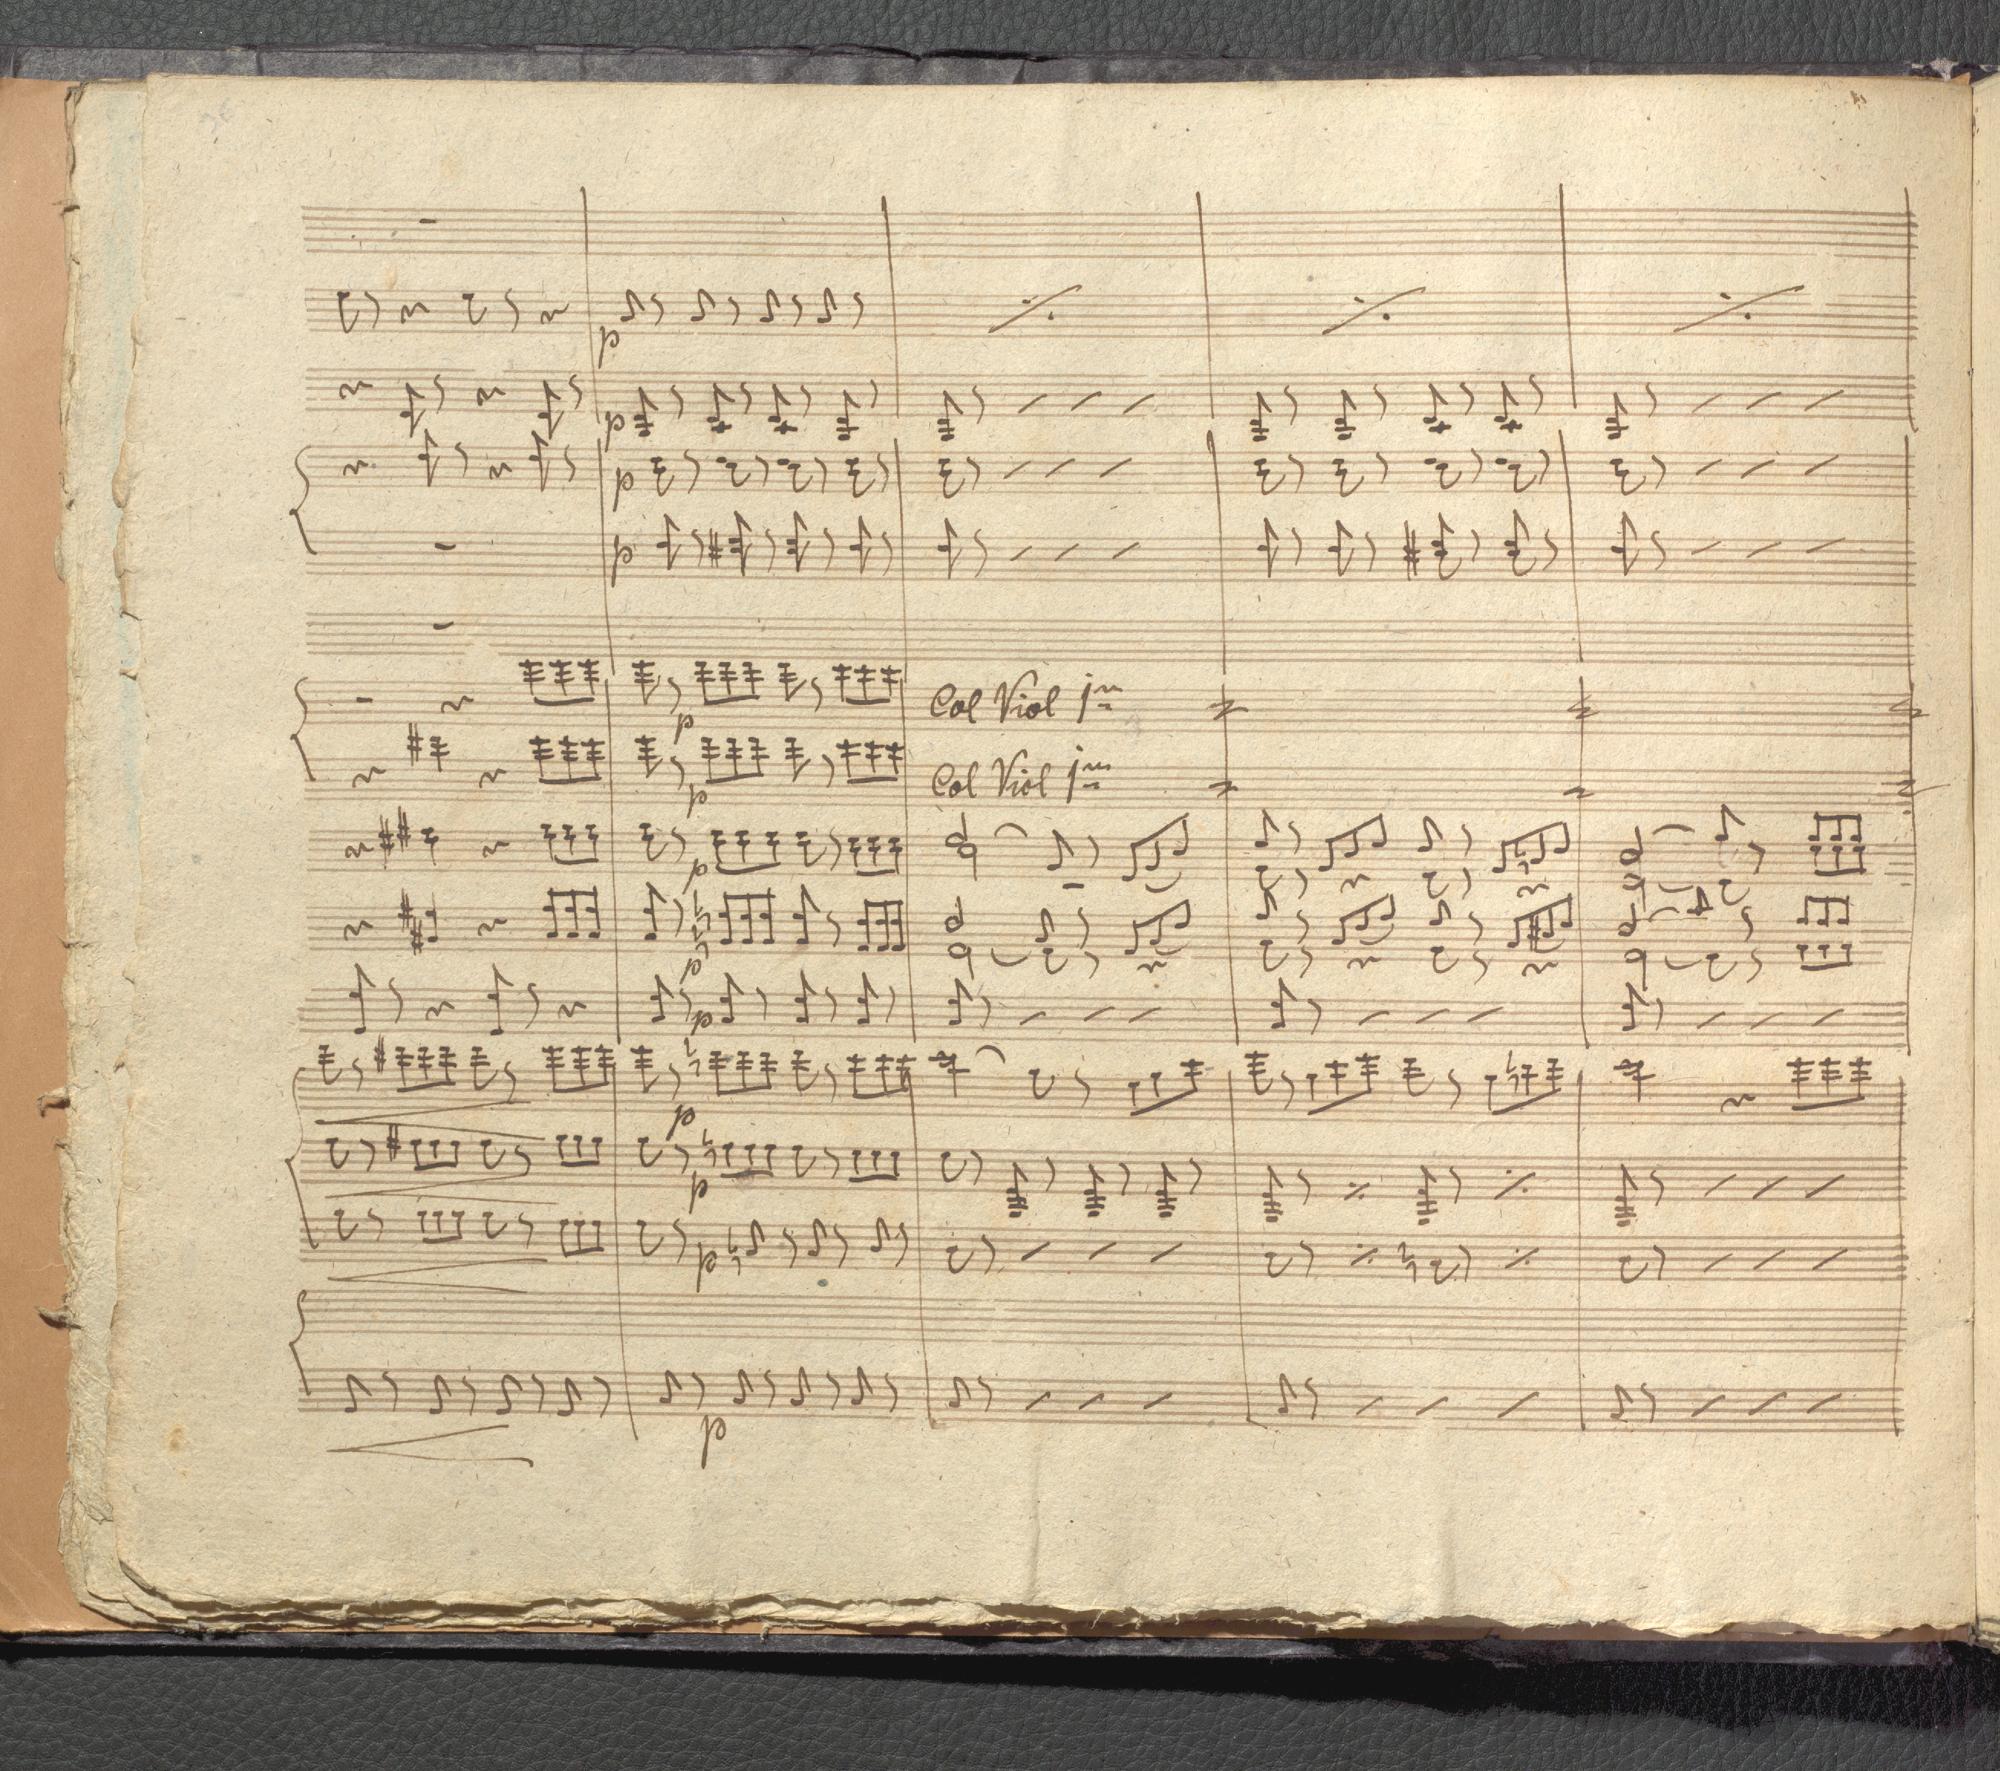 p
p
p
p
p
Col Viol 1mo
p
Col Viol 1mo
p
p
p
p
p
p
p
p